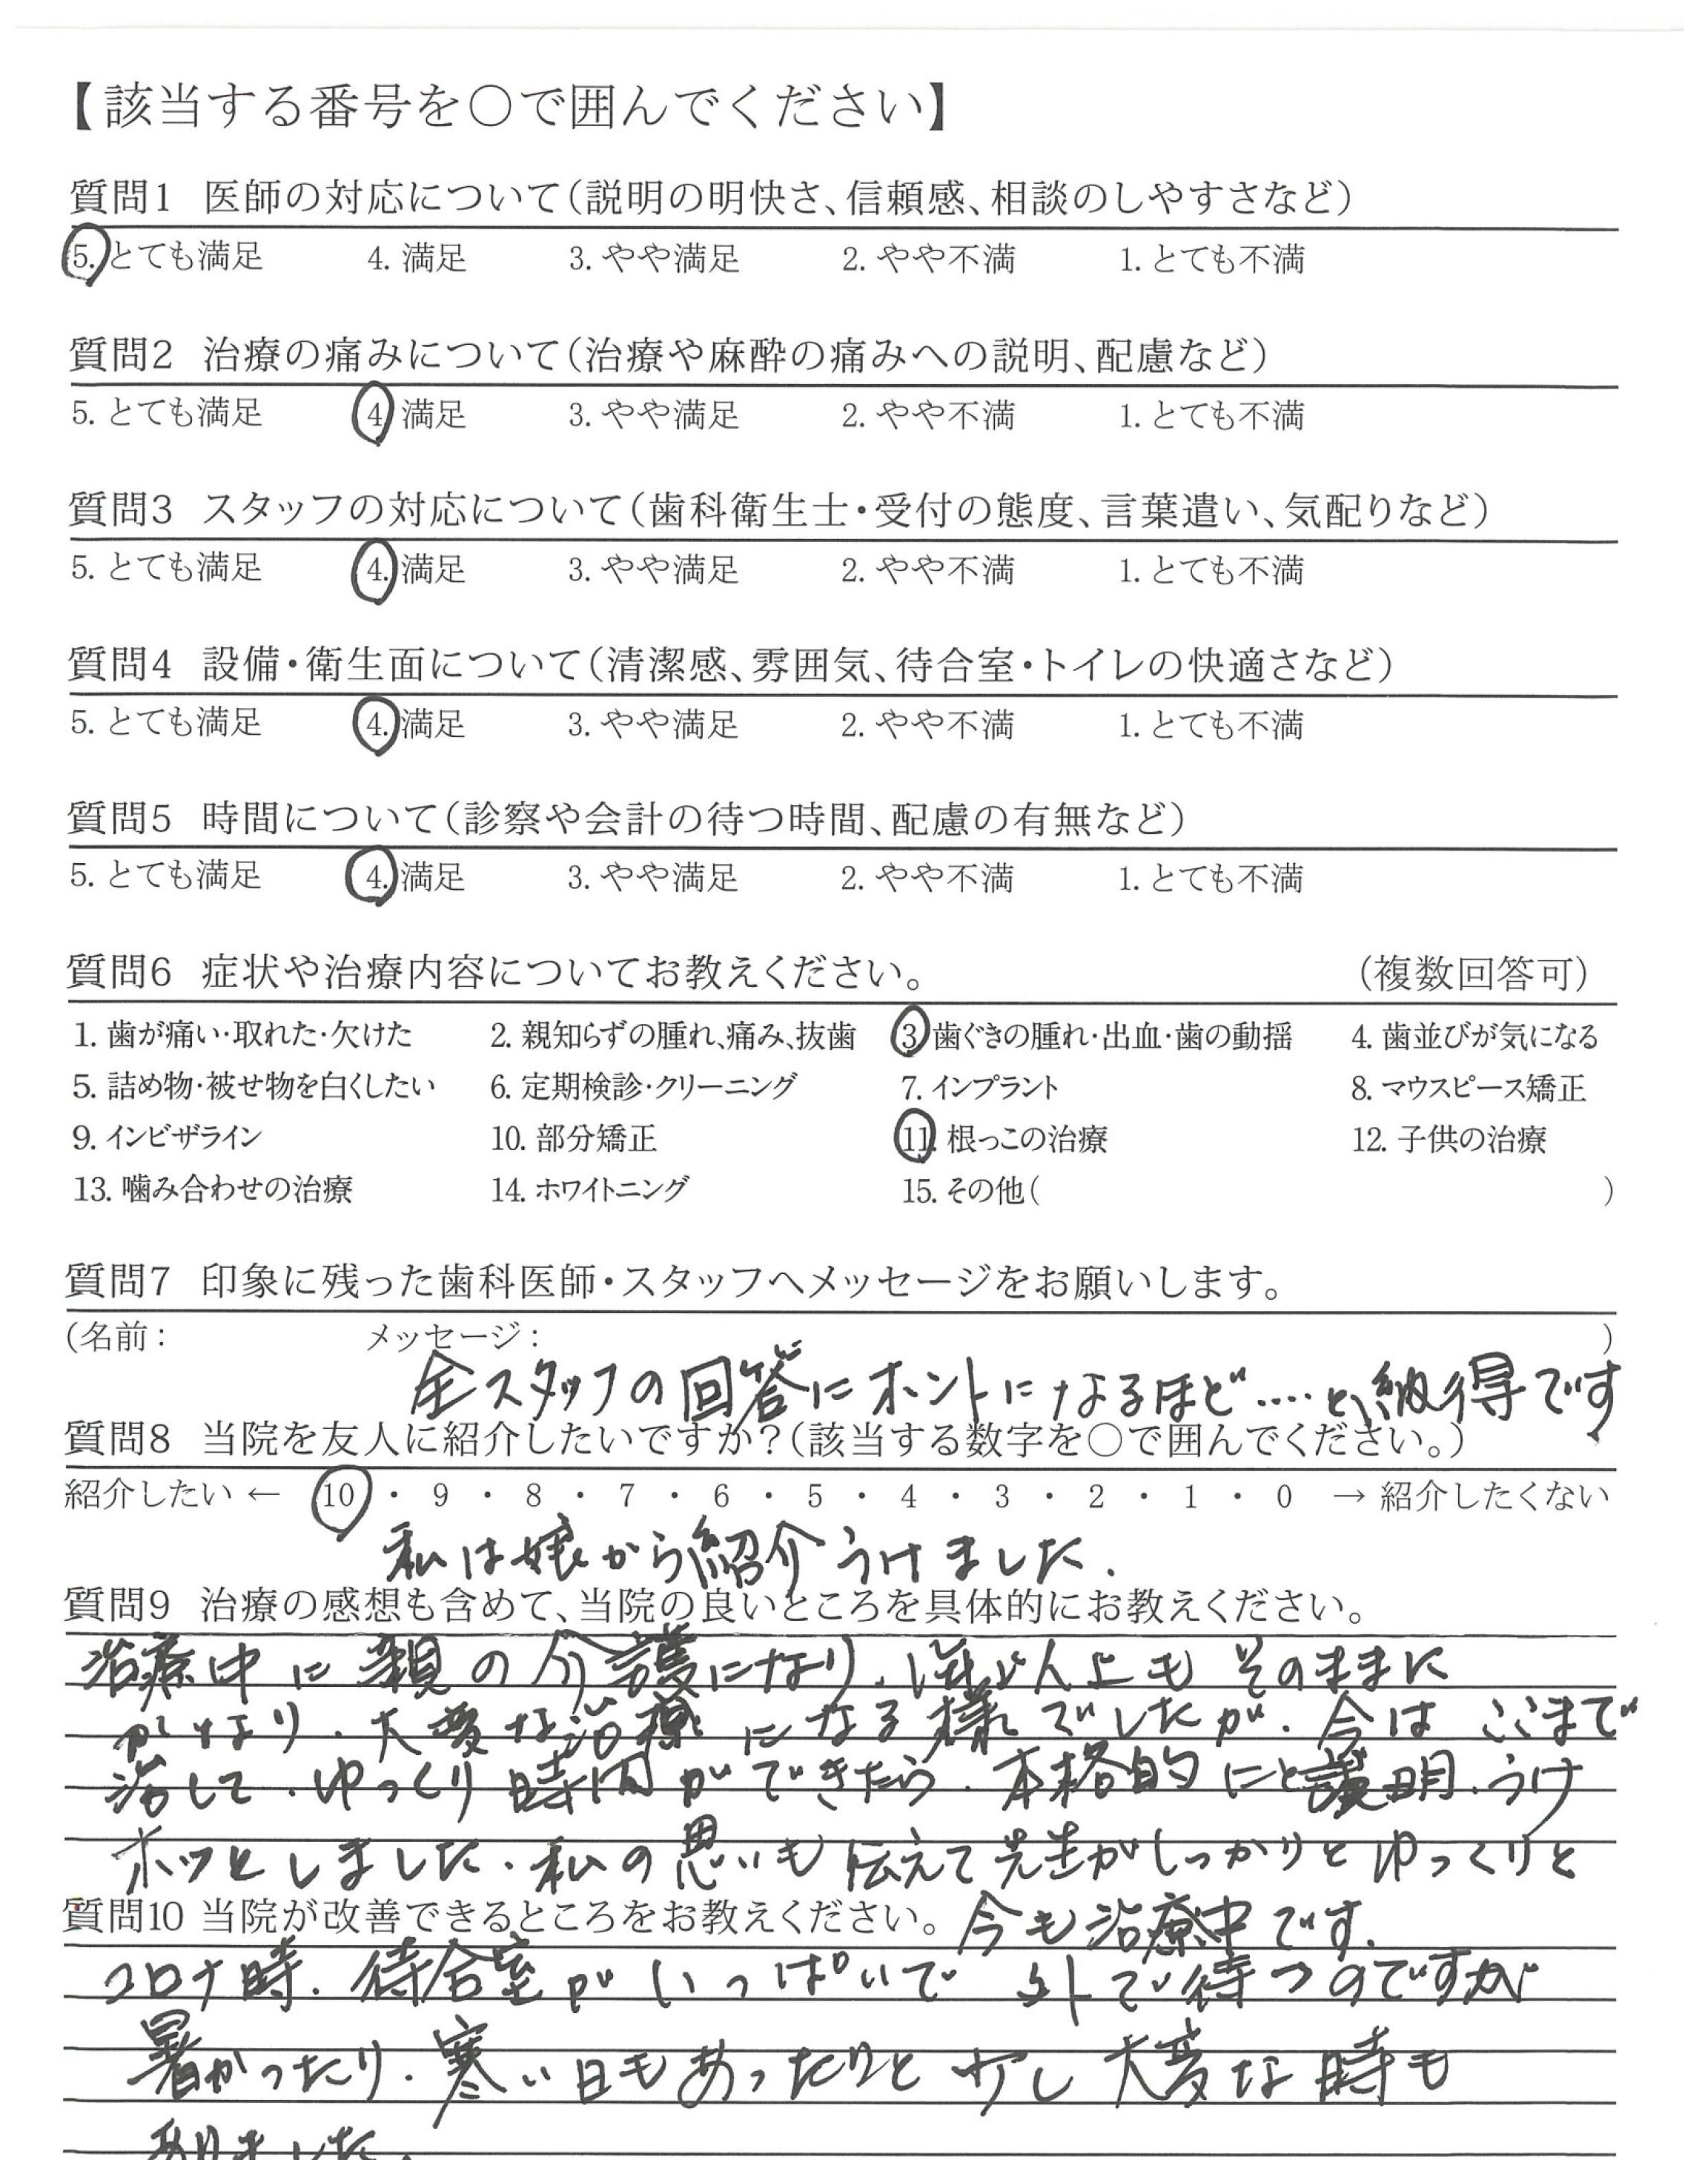 【該当する番号を○で囲んでください】
質問1 医師の対応について(説明の明快さ、信頼感、相談のしやすさなど)
5. とても満足 4. 満足 3. やや満足 2. やや不満 1. とても不満
質問2 治療の痛みについて(治療や麻酔の痛みへの説明、配慮など)
5. とても満足 4. 満足 3. やや満足 2. やや不満 1. とても不満
質問3 スタッフの対応について(歯科衛生士・受付の態度、言葉遣い、気配りなど)
5. とても満足 4. 満足 3. やや満足 2. やや不満 1. とても不満
質問4 設備・衛生面について(清潔感、雰囲気、待合室・トイレの快適さなど)
5. とても満足 4. 満足 3. やや満足 2. やや不満 1. とても不満
質問5 時間について(診察や会計の待つ時間、配慮の有無など)
5. とても満足 4. 満足 3. やや満足 2. やや不満 1. とても不満
質問6 症状や治療内容についてお教えください。 (複数回答可)
1. 歯が痛い・取れた・欠けた 2. 親知らずの腫れ、痛み、抜歯 3. 歯ぐきの腫れ・出血・歯の動揺 4. 歯並びが気になる
5. 詰め物・被せ物を白くしたい 6. 定期検診・クリーニング 7. インプラント 8. マウスピース矯正
9. インビザライン 10. 部分矯正 11. 根っこの治療 12. 子供の治療
13. 噛み合わせの治療 14. ホワイトニング 15. その他( )
質問7 印象に残った歯科医師・スタッフへメッセージをお願いします。
(名前: メッセージ: )
全スタッフの回答にホントになるほど‥‥と、納得です
質問8 当院を友人に紹介したいですか?(該当する数字を○で囲んでください。)
紹介したい ← 10 ・ 9 ・ 8 ・ 7 ・ 6 ・ 5 ・ 4 ・ 3 ・ 2 ・ 1 ・ 0 → 紹介したくない
私は娘から紹介うけました.
質問9 治療の感想も含めて、当院の良いところを具体的にお教えください。
治療中に親の介護になり、以上もそのままに
なり、大変な治療になる様でしたが、今はここまで
治して、ゆっくり時間ができたら、本格的にと説明、うけ
ホッとしました. 私の思いも伝えて先生がしっかりとゆっくりと
質問10 当院が改善できるところをお教えください。 今も治療中です.
コロナ時、待合室がいっぱいで外で待つのですが
暑かったり、寒い日もあったりと少し大変な時も
ありました.